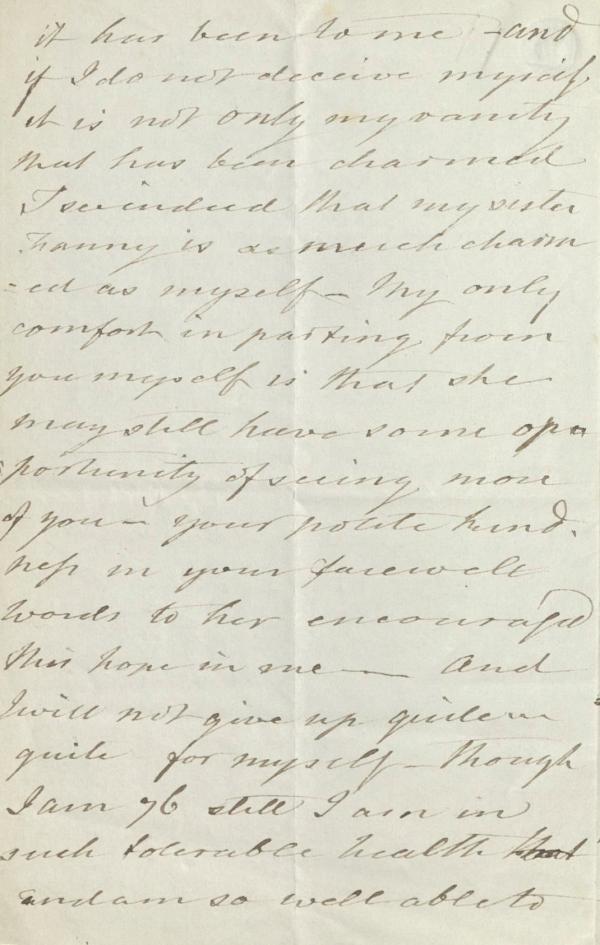 it has been to me - and
if I do not deceive myself
it is not only my vanity
that has been charmed
I see indeed that my sister
Fanny is as much charm
=ed as myself - My only
comfort in parting from
you myself is that she
may still have some op=
portunity of seeing more
of you - your polite kind.
ness in your farewell
words to her encouraged
this hope in me — And
I will not give up quite
quite for myself - though
I am 76 still I am in
such tolerable health that
and am so well able to